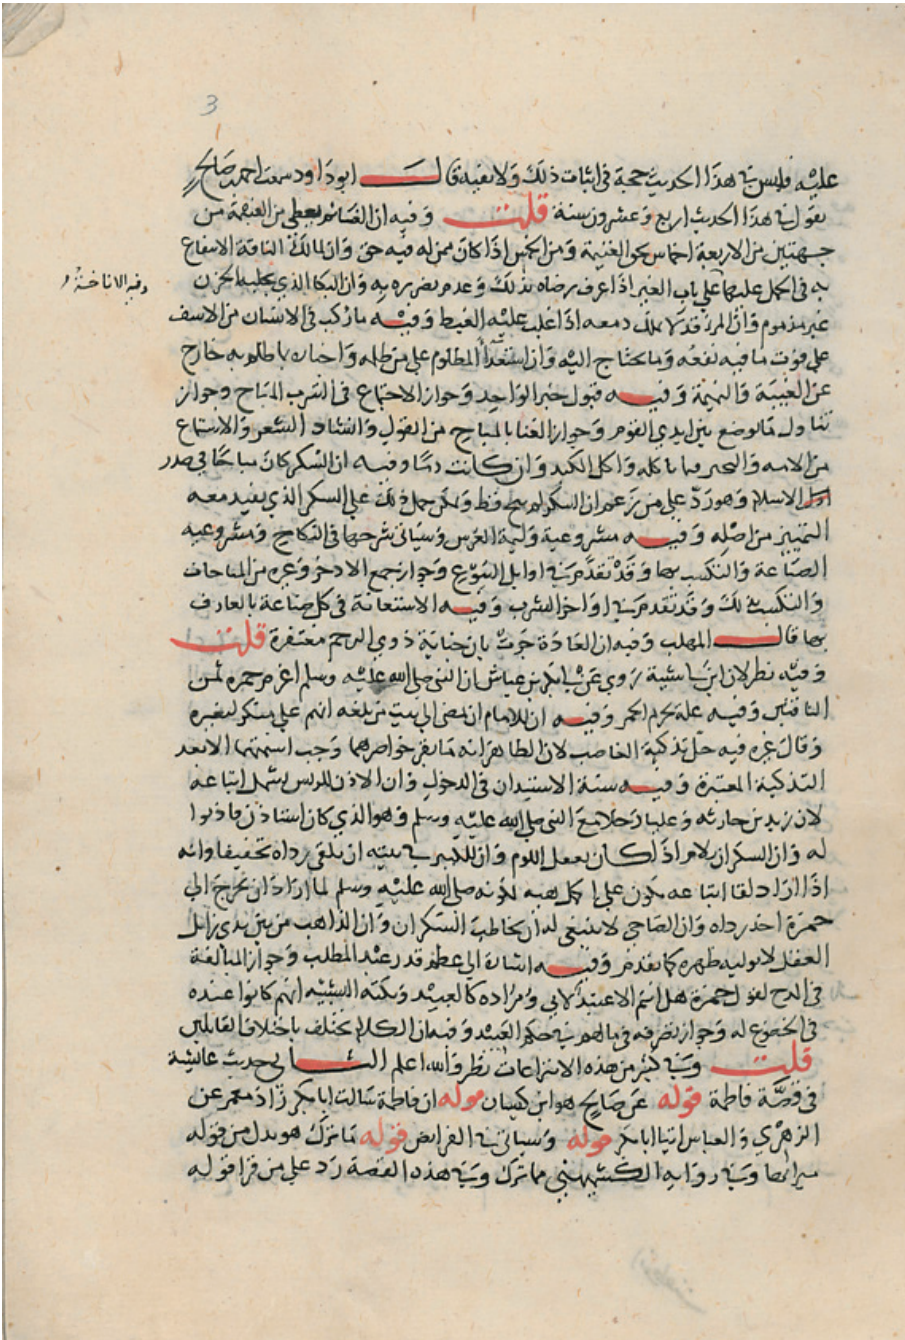 3
عليه فليس في هذا الحديث حجة في اثبات ذلك ولا نفيه قال ابو داود سمعت احمد بن صالح
يقول في هذا الحديث اربع وعشرون سنة قلت وفيه ان الغانم يعطى من الغنيمة من
جهتين من الاربعة اخماس بحق الغنيمة ومن الخمس اذا كان ممن له فيه حق وان لمالك الناقة الانتفاع
به في الحمل عليها على باب الغير اذا عرف رضاه بذلك وعدم تضرره به وان البكا الذي يجلبه الحزن
وفيه الاناخة
غير مذموم وان المرء قد لا يملك دمعه اذا غلب عليه الغيظ وفيه ما ركب في الانسان من الاسف
على فوت ما فيه نفعه وما يحتاج اليه وان استعداء المظلوم على من ظلمه واخباره بما ظلم به خارج
عن الغيبة والنميمة وفيه قبول خبر الواحد وجواز الاجتماع في الشرب المباح وجواز
تناول ما يوضع بين ايدي القوم وجواز الغنا بالمباح من القول وانشاد الشعر والاستماع
من الامة والتخير فيما ياكله واكل الكبد وان كانت دما وفيه ان السكر كان مباحا في صدر
الاسلام وهو رد على من زعم ان السكر لم يبح قط ويمكن حمل ذلك على السكر الذي يفقد معه
التمييز من اصله وفيه مشروعية وليمة العرس وسياتي شرحها في النكاح ومشروعية
الصياغة والتكسب بها وقد تقدم في اوايل البيوع وجواز جمع الاذخر وغيره من المباحات
والتكسب بذلك وقد تقدم في اواخر الشرب وفيه الاستعانة في كل صناعة بالعارف
بها قال المهلب وفيه ان العادة جرت بان جناية ذوي الرحم مغتفرة قلت
وفيه نظر لان ابن ابي شيبة روي عن ابي بكر بن عياش ان النبي صلى الله عليه وسلم اغرم حمزة ثمن
الناقتين وفيه علة تحريم الخمر وفيه ان للامام ان يمضي الي بيت من بلغه انهم على منكر ليغيره
وقال غيره فيه حل تذكية الغاصب لان الظاهر انه ما بقر خواصرهما وجب اسنمتهما الا بعد
التذكية المعتبرة وفيه سنة الاستيذان في الدخول وان الاذن للرييس يشمل اتباعه
لان زيد بن حارثة وعليا دخلا مع النبي صلى الله عليه وسلم وهو الذي كان استاذن فاذنوا
له وان السكران يلام اذا كان يعقل اللوم وان للكبير في بيته ان يلقى رداه تخفيفا وانه
اذا اراد لقا اتباعه يكون على اكمل هيبه لكونه صلى الله عليه وسلم لما اراد ان يخرج الي
حمزة اخذ رداه وان الصاحي لا ينبغي له ان يخاطب السكران وان الذاهب من بين يدي زايل
العقل لا يوليه ظهره كما تقدم وفيه اشارة الي عظم قدر عبد المطلب وجواز المبالغة
في المدح لقول حمزة هل انتم الا عبيد لابي ومراده كالعبيد ونكتة التشبيه انهم كانوا عنده
في الخضوع له وجواز تصرفه في مالهم في حكم العبيد وفيه ان الكلام يختلف باختلاف القايلين
قلت وفي كثير من هذه الانتزاعات نظر والله اعلم الثاني حديث عائشة
في قصة فاطمة قوله عن صالح هو ابن كيسان قوله ان فاطمة سالت ابا بكر زاد معمر عن
الزهري والعباس اتيا ابا بكر قوله وسياتي في الفرايض قوله ما ترك هو بدل من قوله
ميراثها وفي رواية الكشميهني مما ترك وفي هذه القصة رد على من قرا قوله